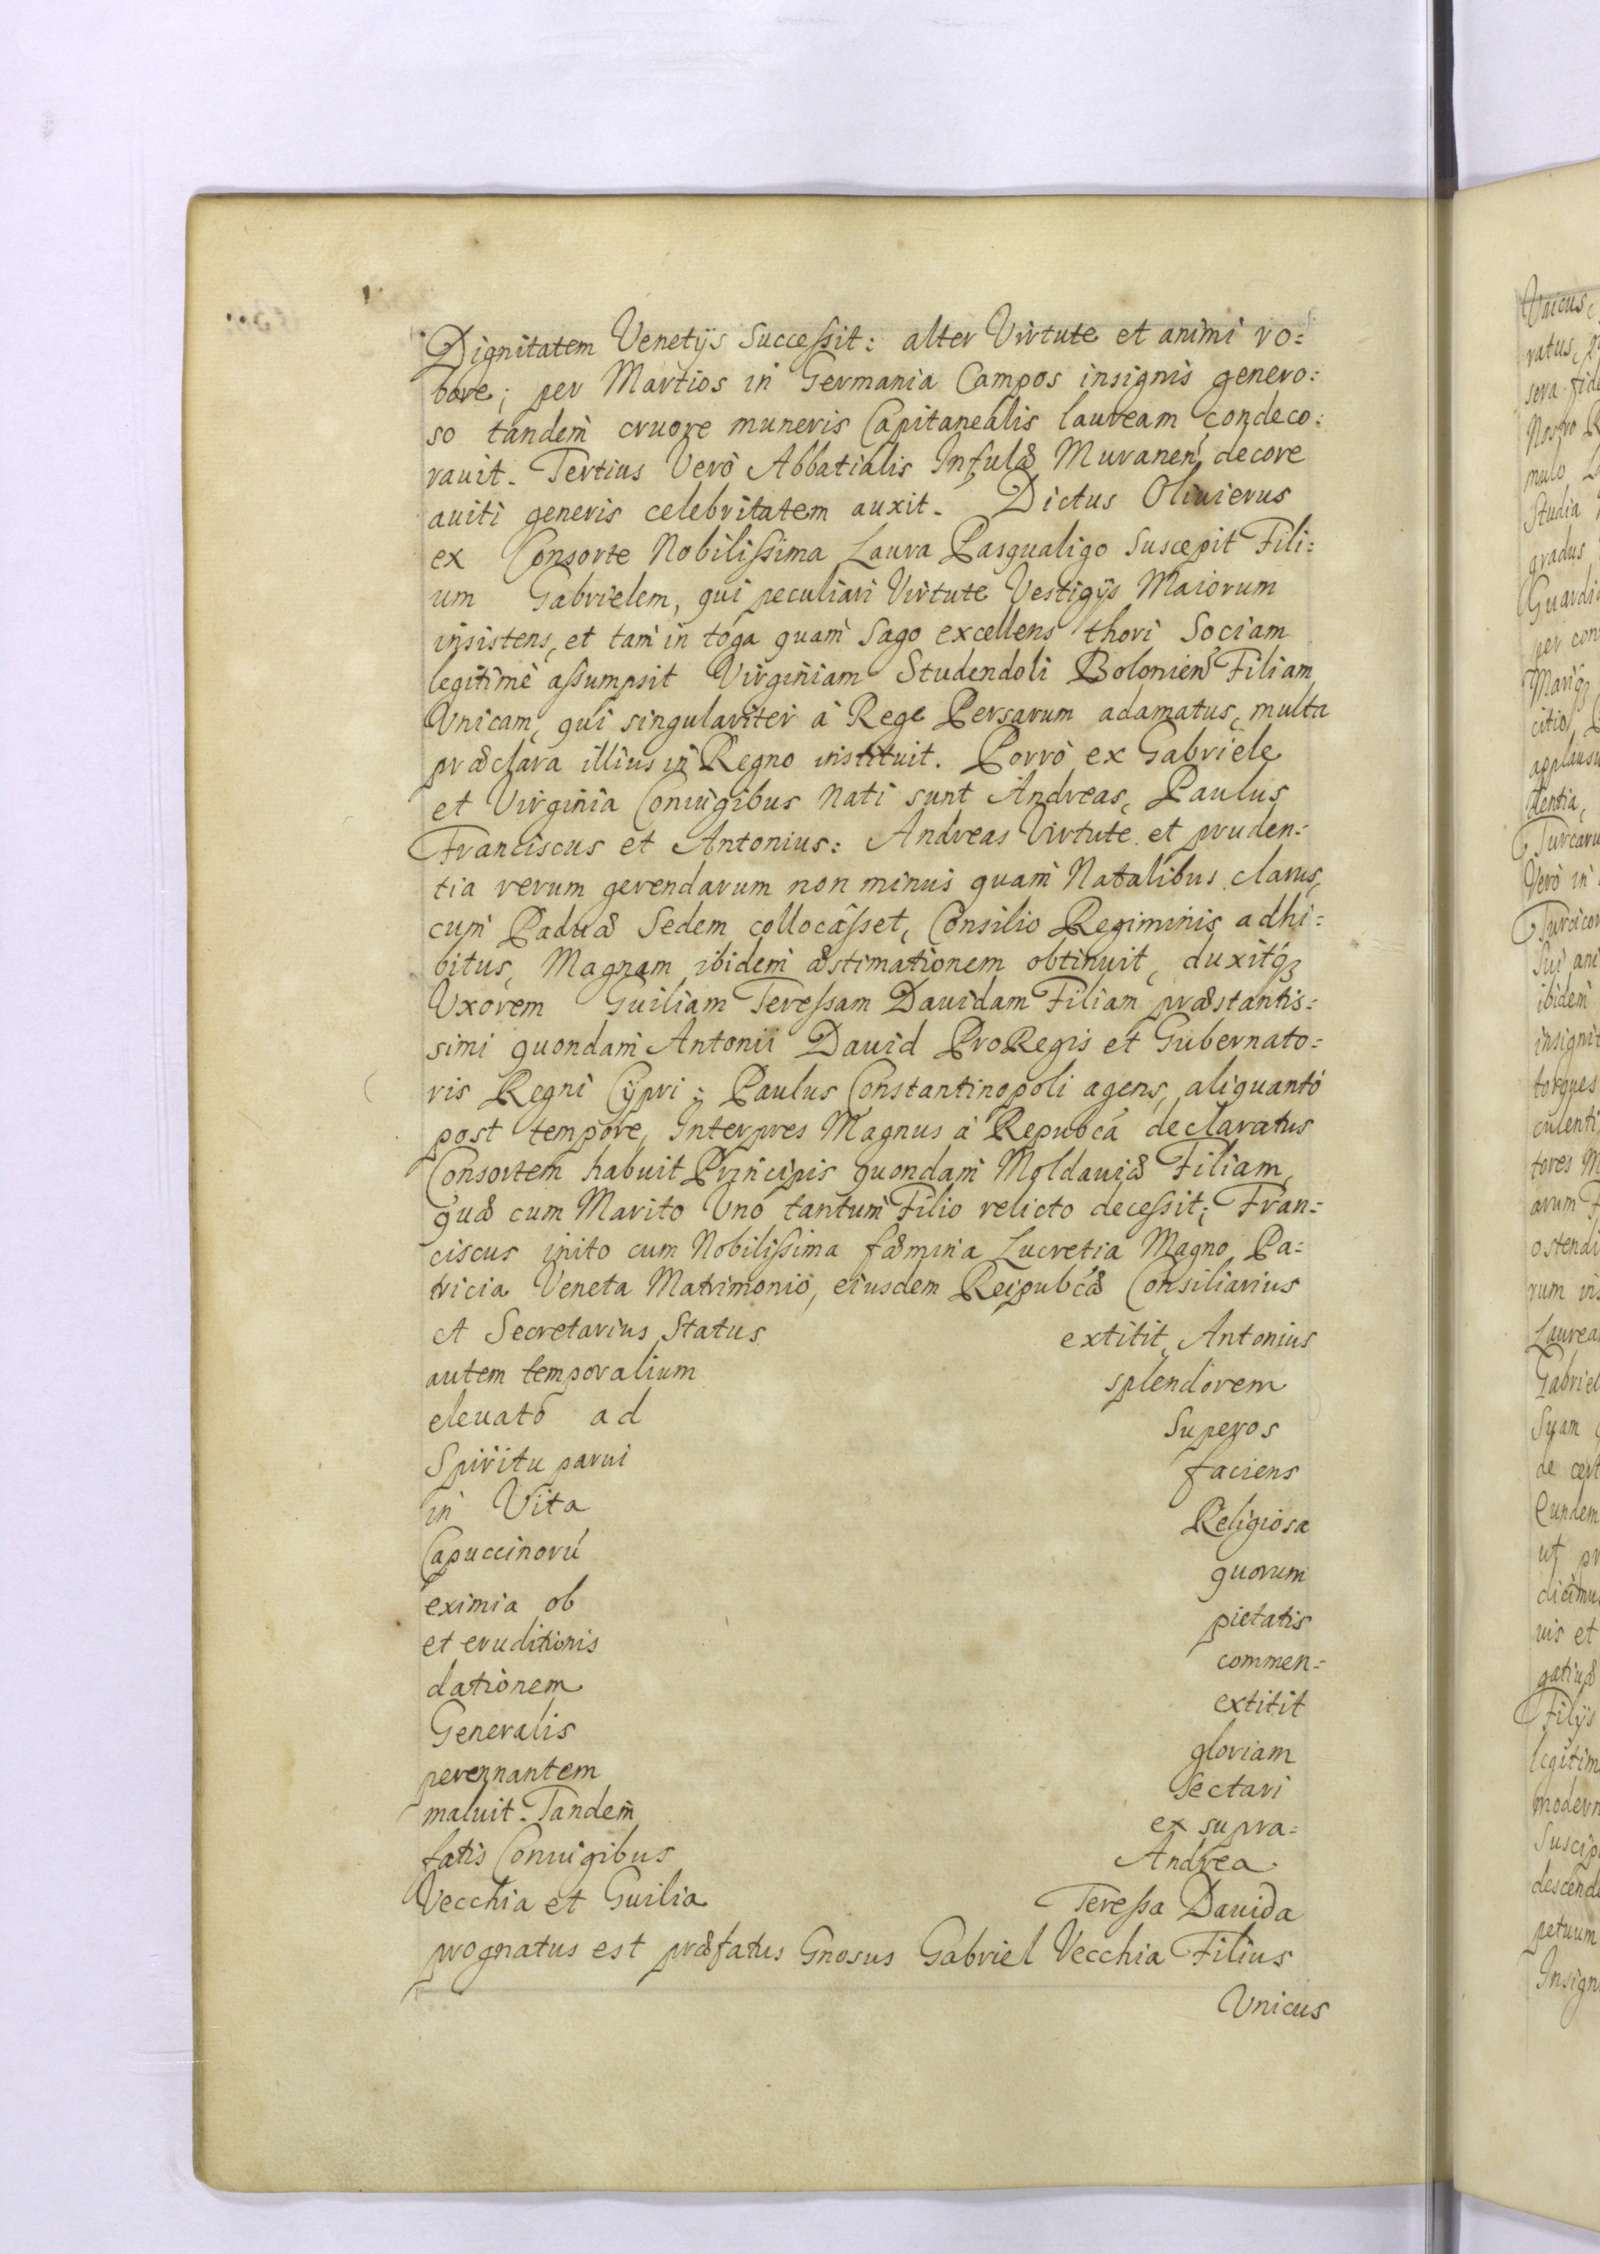 Dignitatem Venetijs Successit: alter Virtute et animi ro=
bore; per Martios in Germania Campos insignis genero=
so tandem cruore muneris Capitanealis lauream condeco:
rauit. Tertius Verò Abbatialis Infulæ Muranen decore
auiti generis celebritatem auxit. Dictus Oliuierus
ex Consorte Nobilissima Laura Pasqualigo Suscepit Fili=
um Gabrielem, qui peculiari Virtute Vestigijs Maiorum
insistens, et tam in toga quam Sago excellens thori Sociam
legitimè assumpsit Virginiam Studendoli Bolonien Filiam
Vnicam, qui singulariter à Rege Persarum adamatus, multa
præclara illius in Regno instituit. Porrò ex Gabriele
et Virginia Coniugibus Nati sunt Andreas, Paulus
Franciscus et Antonius: Andreas Virtute et pruden=
tia rerum gerendarum non minus quam Natalibus clarus,
cum Paduæ Sedem collocâsset, Consilio Regiminis adhi=
bitus, Magnam ibidem æstimationem obtinuit, duxitq́ꝫ
Vxorem Guiliam Teressam Dauidam Filiam præstantis=
simi quondam Antonii Dauid ProRegis et Gubernato=
ris Regni Cÿpri; Paulus Constantinopoli agens, aliquantò
post tempore, Interpres Magnus à Repubcâ declaratus
Consortem habuit Principis quondam Moldauiæ Filiam,
quæ cum Marito Vno tantum Filio relicto decessit; Fran=
ciscus inito cum Nobilissima fæmina Lucretia Magno Pa=
tricia Veneta Matrimonio, eiusdem Reipubcæ Consiliarius
et Secretarius Status extitit, Antonius
autem temporalium splendorem
eleuato ad Superos
Spiritu parui faciens
in Vita Religiosa
Capuccinorú quorum
eximia ob pietatis
et eruditionis commen=
dationem extitit
Generalis gloriam
perennantem Sectari
maluit. Tandem ex supra=
fatis Coniugibus Andrea
Vecchia et Guilia Teressa Dauida
prognatus est præfatus Gnosus Gabriel Vecchia Filius
Vnicus